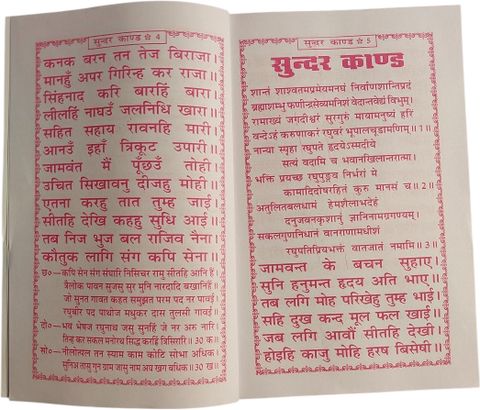 सुन्दर काण्ड ☆ 4
कनक बरन तन तेज बिराजा।
मानहुँ अपर गिरिन्ह कर राजा।।
सिंहनाद करि बारहिं बारा।
लीलहिं नाघउँ जलनिधि खारा।।
सहित सहाय रावनहि मारी।
आनउँ इहाँ त्रिकूट उपारी।।
जामवंत मैं पूँछउँ तोही।
उचित सिखावनु दीजहु मोही।।
एतना करहु तात तुम्ह जाई।
सीतहि देखि कहहु सुधि आई।।
तब निज भुज बल राजिव नैना।
कौतुक लागि संग कपि सेना।।
छ०— कपि सेन संग संघारि निसिचर रामु सीतहि आनि हैं।
त्रैलोक पावन सुजसु सुर मुनि नारदादि बखानिहैं।।
जो सुनत गावत कहत समुझत परम पद नर पावई।
रघुबीर पद पाथोज मधुकर दास तुलसी गावई।।
दो०— भव भेषज रघुनाथ जसु सुनहिं जे नर अरु नारि।
तिन्ह कर सकल मनोरथ सिद्ध करहिं त्रिसिरारि।। 30 क।।
सो०— नीलोत्पल तन स्याम काम कोटि सोभा अधिक।
सुनिअ तासु गुन ग्राम जासु नाम अघ खग बधिक।। 30 ख।।
सुन्दर काण्ड ☆ 5
सुन्दर काण्ड
शान्तं शाश्वतमप्रमेयमनघं निर्वाणशान्तिप्रदं
ब्रह्माशम्भु फणीन्द्रसेव्यमनिशं वेदान्तवेद्यं विभुम्।
रामाख्यं जगदीश्वरं सुरगुरुं मायामनुष्यं हरिं
वन्देऽहं करुणाकरं रघुवरं भूपालचूडामणिम्।। 1।।
नान्या स्पृहा रघुपते हृदयेऽस्मदीये
सत्यं वदामि च भवानखिलान्तरात्मा।
भक्तिं प्रयच्छ रघुपुङ्गव निर्भरां मे
कामादिदोषरहितं कुरु मानसं च।। 2।।
अतुलितबलधामं हेमशैलाभदेहं
दनुजवनकृशानुं ज्ञानिनामग्रगण्यम्।
सकलगुणनिधानं वानराणामधीशं
रघुपतिप्रियभक्तं वातजातं नमामि।। 3।।
जामवन्त के बचन सुहाए।
सुनि हनुमन्त हृदय अति भाए।।
तब लगि मोह परिखेहु तुम्ह भाई।
सहि दुख कन्द मूल फल खाई।।
जब लगि आवौं सीतहि देखी।
होइहि काजु मोहि हरष बिसेषी।।